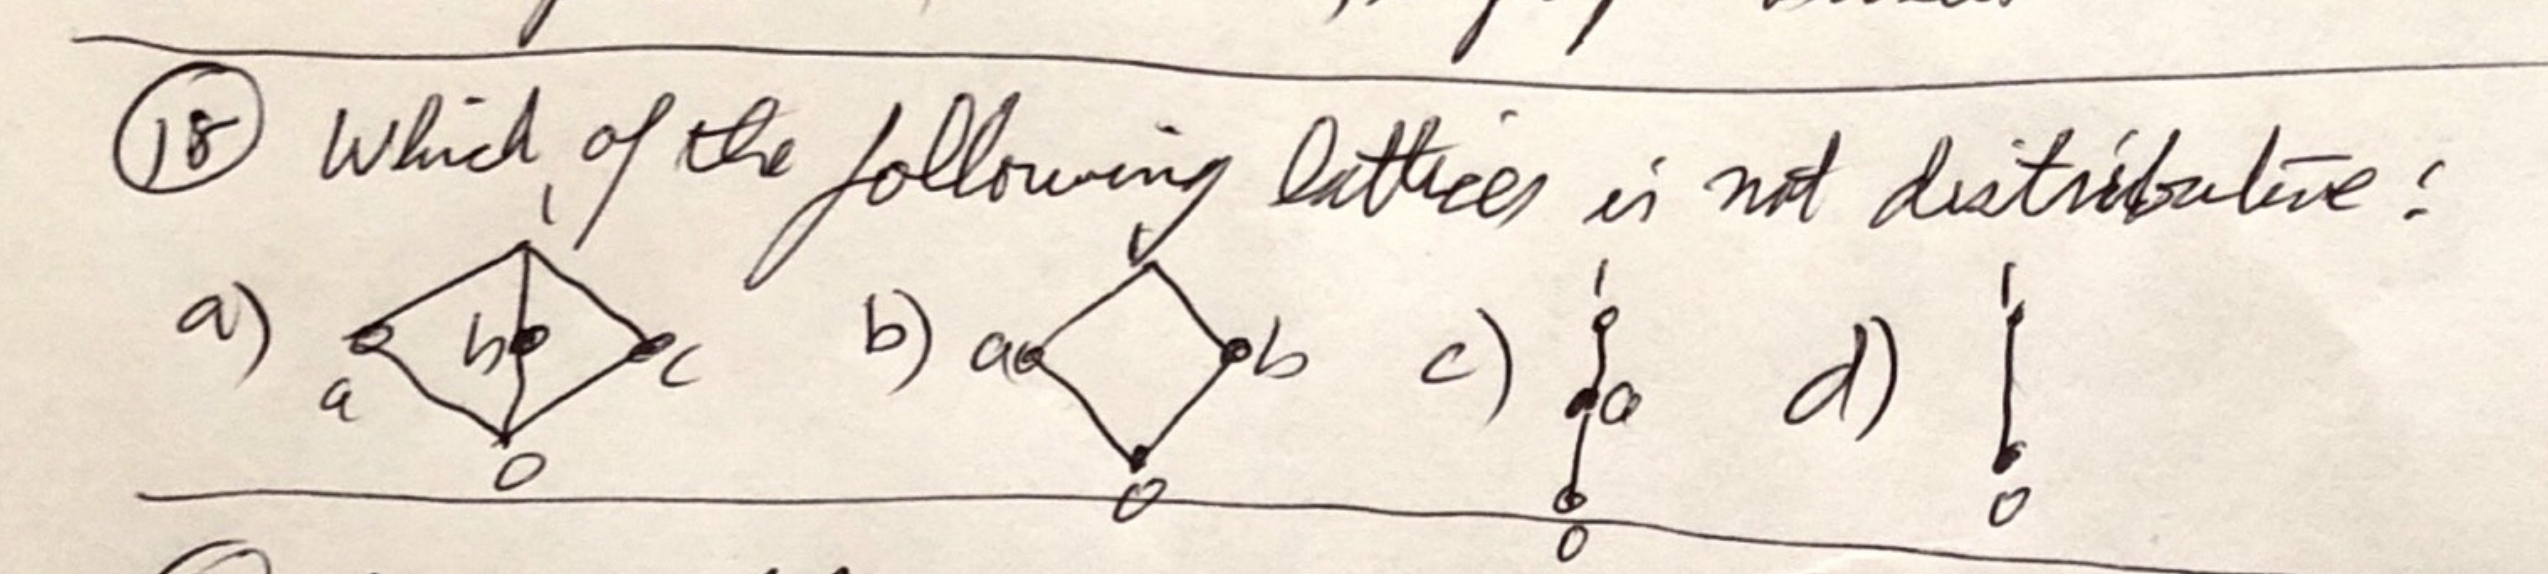 18 Which of the following lattices is not distributive:
a) 1 a b c 0 b) 1 a b 0 c) 1 a 0 d) 1 0